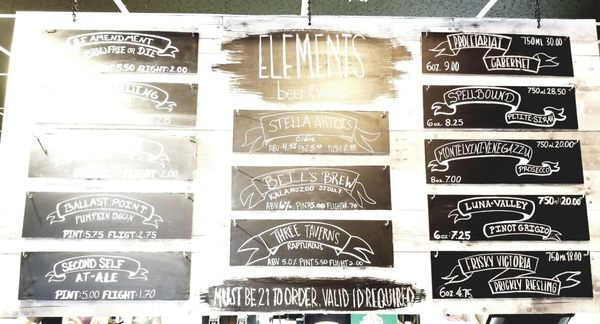 1ST AMENDMENT
BREW FREE OR DIE
PINT: 5.50 FLIGHT: 2.00
BALLAST POINT
PUMPKIN DOWN
PINT: 5.75 FLIGT: 2.75
SECOND SELF
AT-ALE
PINT: 5.00 FLIGHT: 1.70
ELEMENTS
beer & wine
STELLA ARTOIS
Cidre
ABV 4.5%
BELL'S BREW
KALAMOZOO STOUT
ABV 6% PINT 5.00 FLIGHT: 1.70
THREE TAVERNS
RAPTUROUS
ABV 5.0% PINT: 5.50 FLIGHT: 2.00
MUST BE 21 TO ORDER. VALID ID REQUIRED
PROLETARIAT 750ML 30.00
CABERNET
6oz 9.00
SPELLBOUND 750ml 28.50
PETITE-SIRAH
6oz 8.25
MONTELVINI-VENEGAZZU 750ml 20.00
PROSECCO
8oz 7.00
LUNA-VALLEY 750ML 20.00
PINOT GRIGIO
6oz: 7.25
FRISKY VICTORIA 750ML 18.00
PRICKLY RIESLING
6oz 4.75